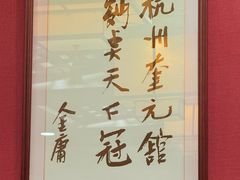 杭州奎元館
麪桌天下冠
金庸